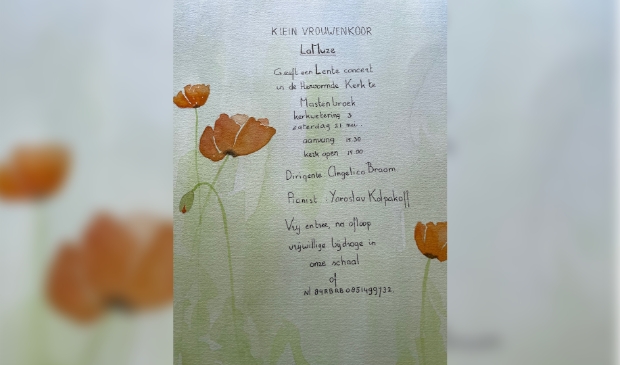 KLEIN VROUWENKOOR
LaMuze
Geeft een Lente concert
in de Hervormde Kerk te
Mastenbroek
kerkwetering 3
zaterdag 21 mei.
aanvang 15.30
kerk open 15.00
Dirigente Angelica Braam
Pianist : Yaroslav Kolpakoff
Vrij entree, na afloop
vrijwillige bijdrage in
onze schaal
of